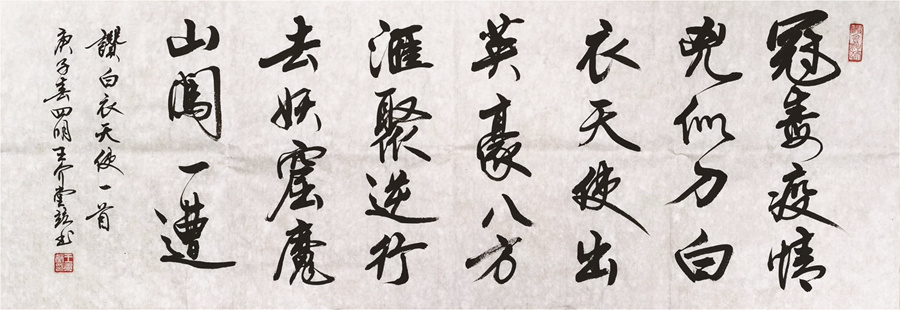 冠毒疫情
兇似刀白
衣天使出
英豪八方
滙聚逆行
去妖窟魔
山闖一遭
讚白衣天使一首
庚子春四明王介堂书